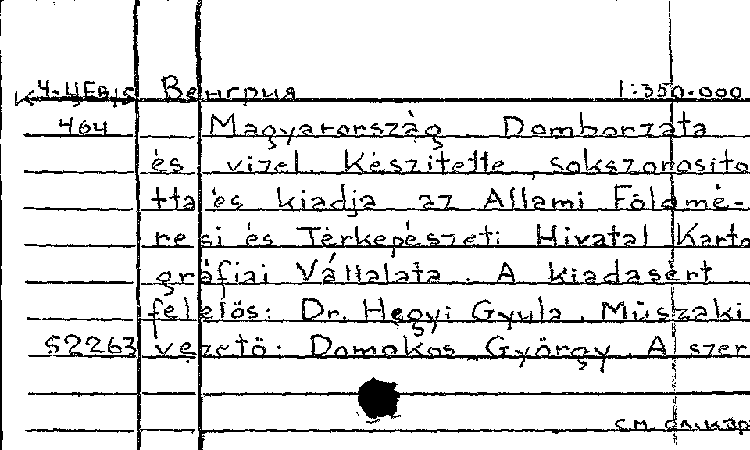 К 4-ЦЕВ/5 Венгрия 1:350.000
464 Magyarország Domborzata
és vizei. Készitette, sokszorosito
tta és kiadja az Allami Földmé-
re si és Térkepészeti Hivatal Karto
gráfiai Vállalata. A kiadasért
felelös: Dr. Hegyi Gyula. Müszaki
52263 vezetö: Domokos György. A szer
см. сл. кар